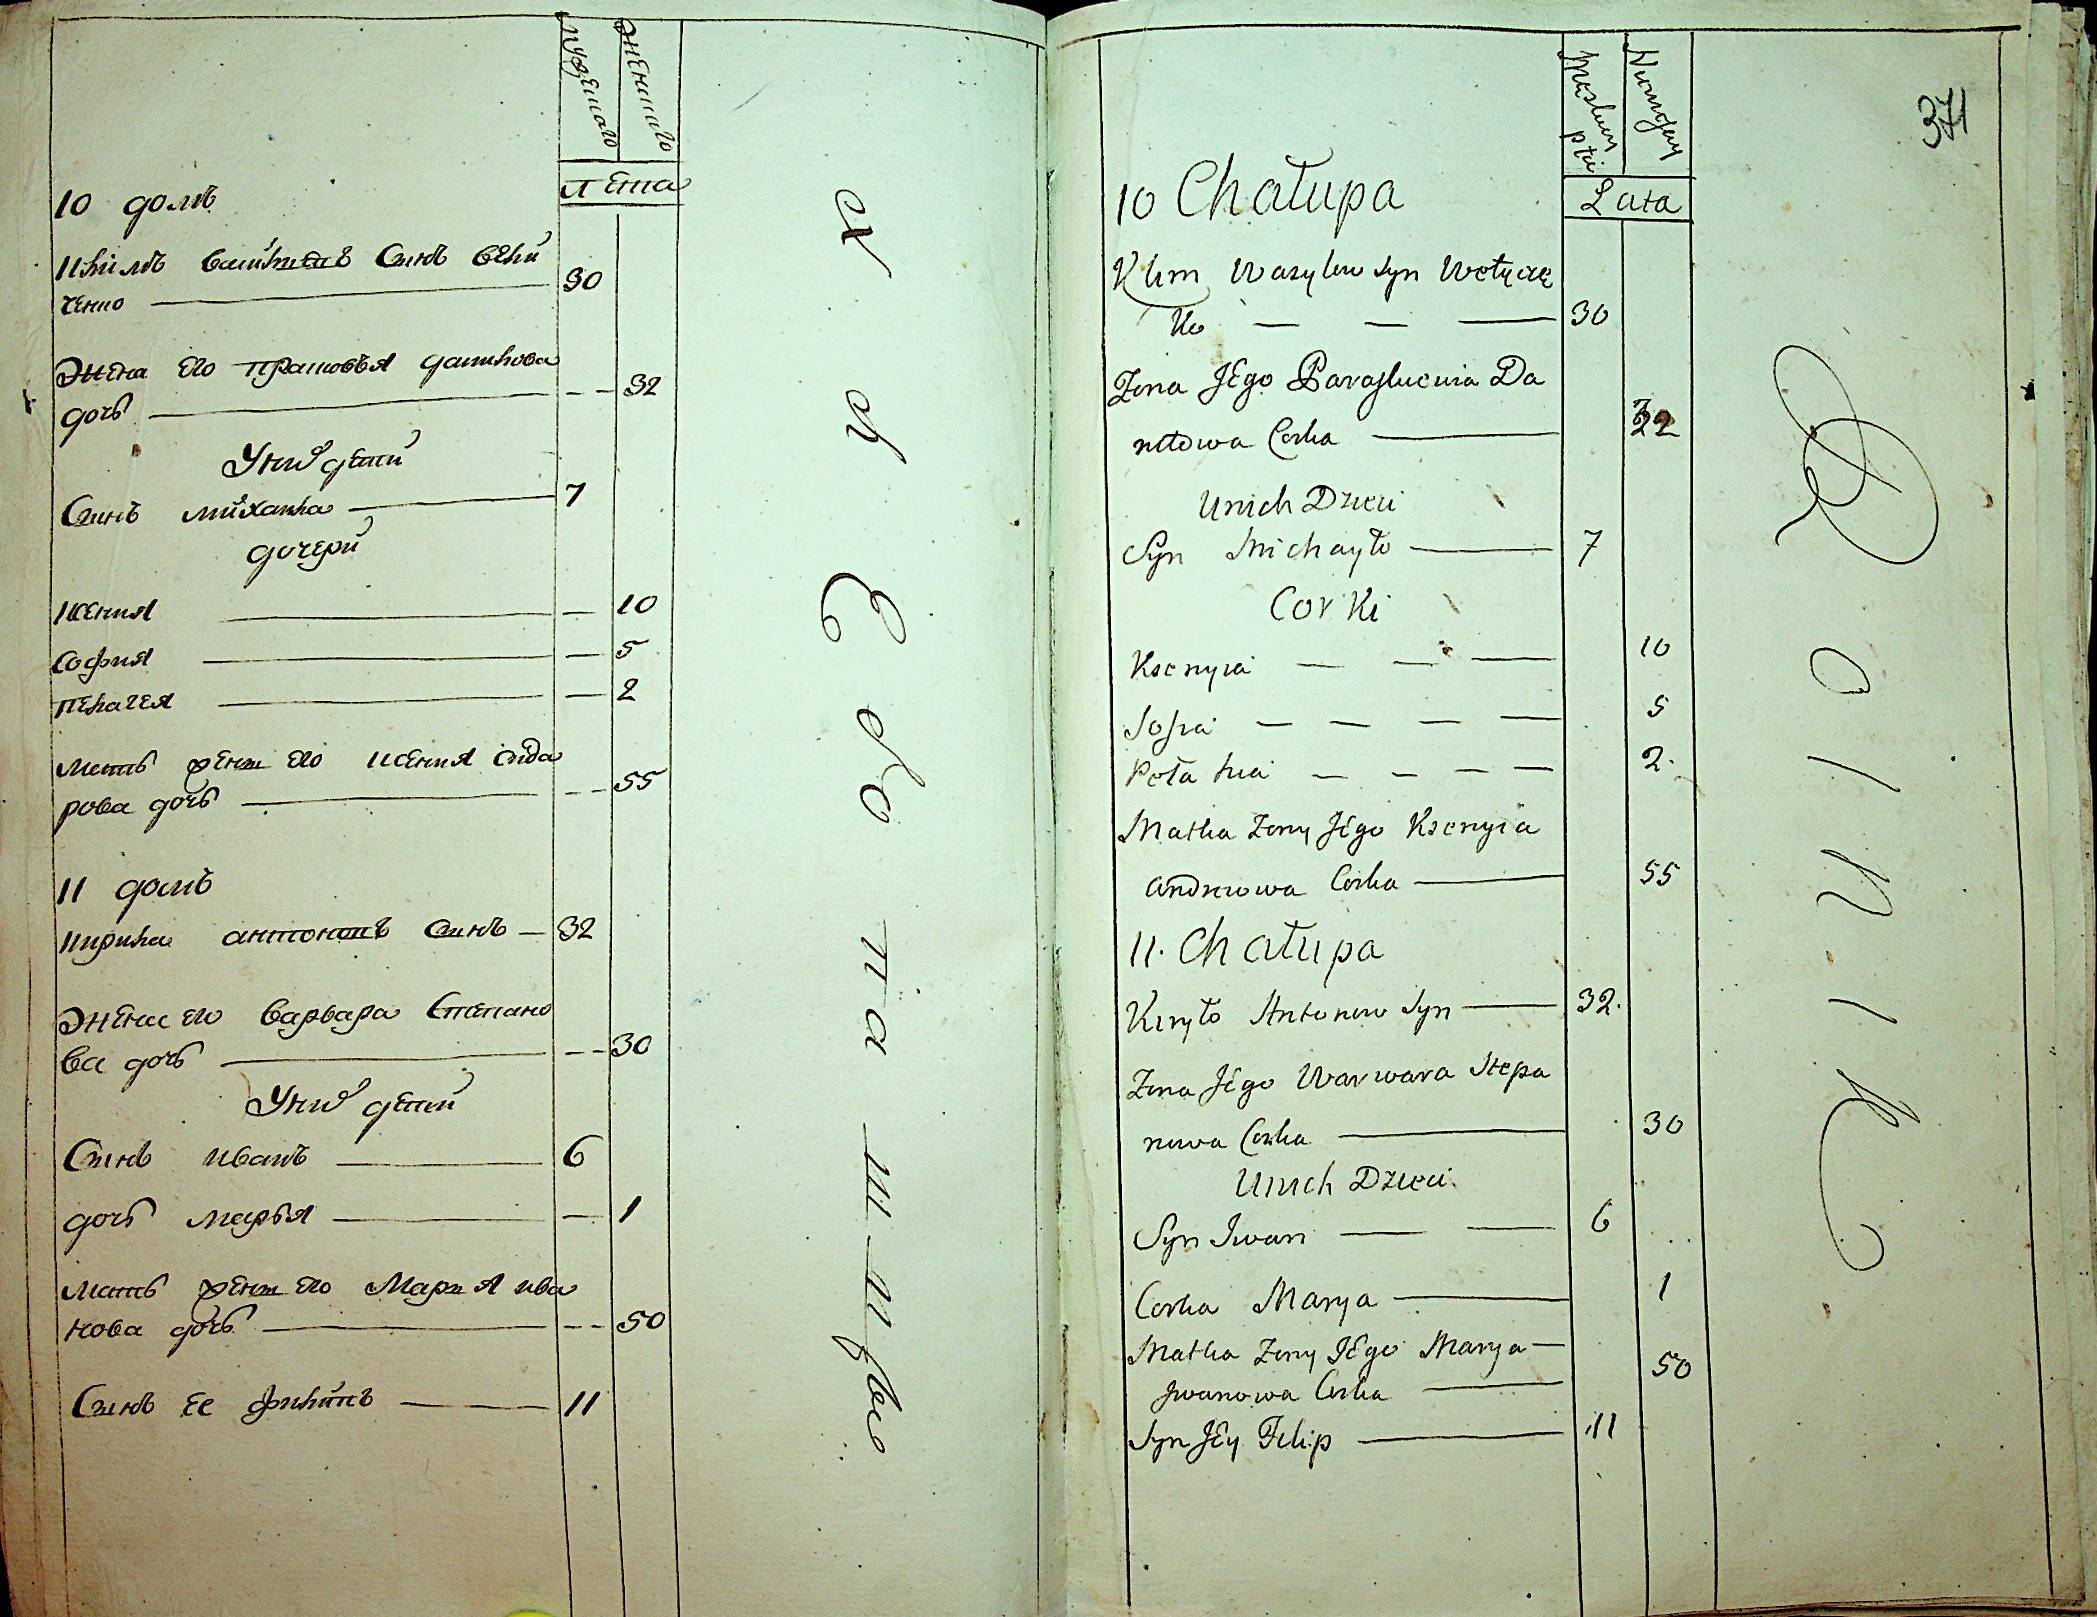 мужескаго
женскаго
лета
10 домъ
Климъ васильевъ Синъ вели
ченко 30
Жена его прасковья данилова
дочь 32
У них детей
Синъ михаила 7
дочери
ксения 10
софия 5
пелагея 2
мать жены его ксения сида
рова дочь 55
11 домъ
кирила антоновъ синъ 32
Жена его варвара Степано
ва дочь 30
У них детей
Синъ иванъ 6
дочь марья 1
мать жены его Мария ива
нова дочь 50
Синъ ее филипъ 11
371
Lata
10 Chałupa
Klim Wasylew syn Wełycze
ko 30
Zona Jego Paraskewia Da
niłowa Corka 32
Unich Dzieci
Syn Michayło 7
Corki
Ksenyia 10
Sofia 5
Pełahia 2.
Matka Zony Jego Ksenyia
Andreiowa Corka 55
11. Chałupa
Kiryło Antonow Syn 32.
Zona Jego Warwara Stepa
nowa Corka 30
Unich Dzieci.
Syn Iwan 6
Corka Marya 1
Matka Zony Jego Marya
Iwanowa Corka 50
Syn Jey Filip 11